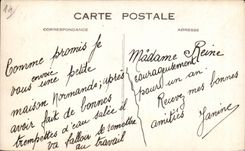 CARTE POSTALE
CORRESPONDANCE
ADRESSE
Comme promis je
envoie
vous une petite
maison Normande; après
avoir fait de bonnes
trempettes d'eau salée il
va falloir se remettre
au travail
Madame Reine
courageusement
pour un an.
Recevez mes bonnes
amitiés Janine